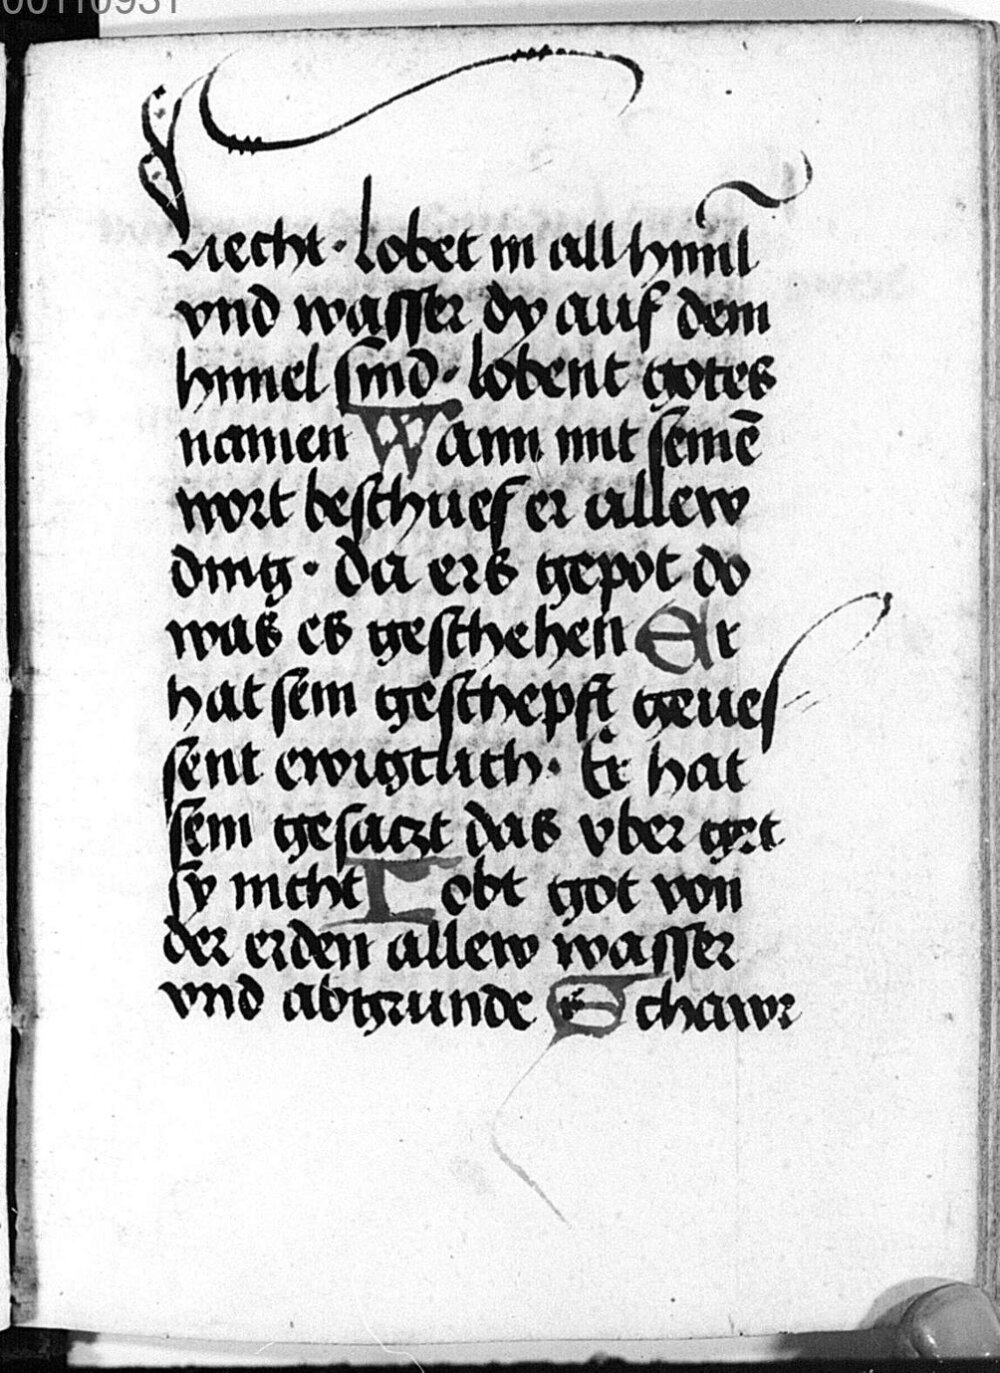 00110931
liecht · lobet in all himl
vnd wasser dy auf dem
himel sind · lobent gotes
namen Wann mit seinē
wort beschuef er allew
ding · da ers gepot do
was es geschehen Er
hat sein geschepft geues
sent ewigclich · Er hat
sein gesaczt das vber get
sy nicht Lobt got von
der erden allew wasser
vnd abtgrunde Schawr